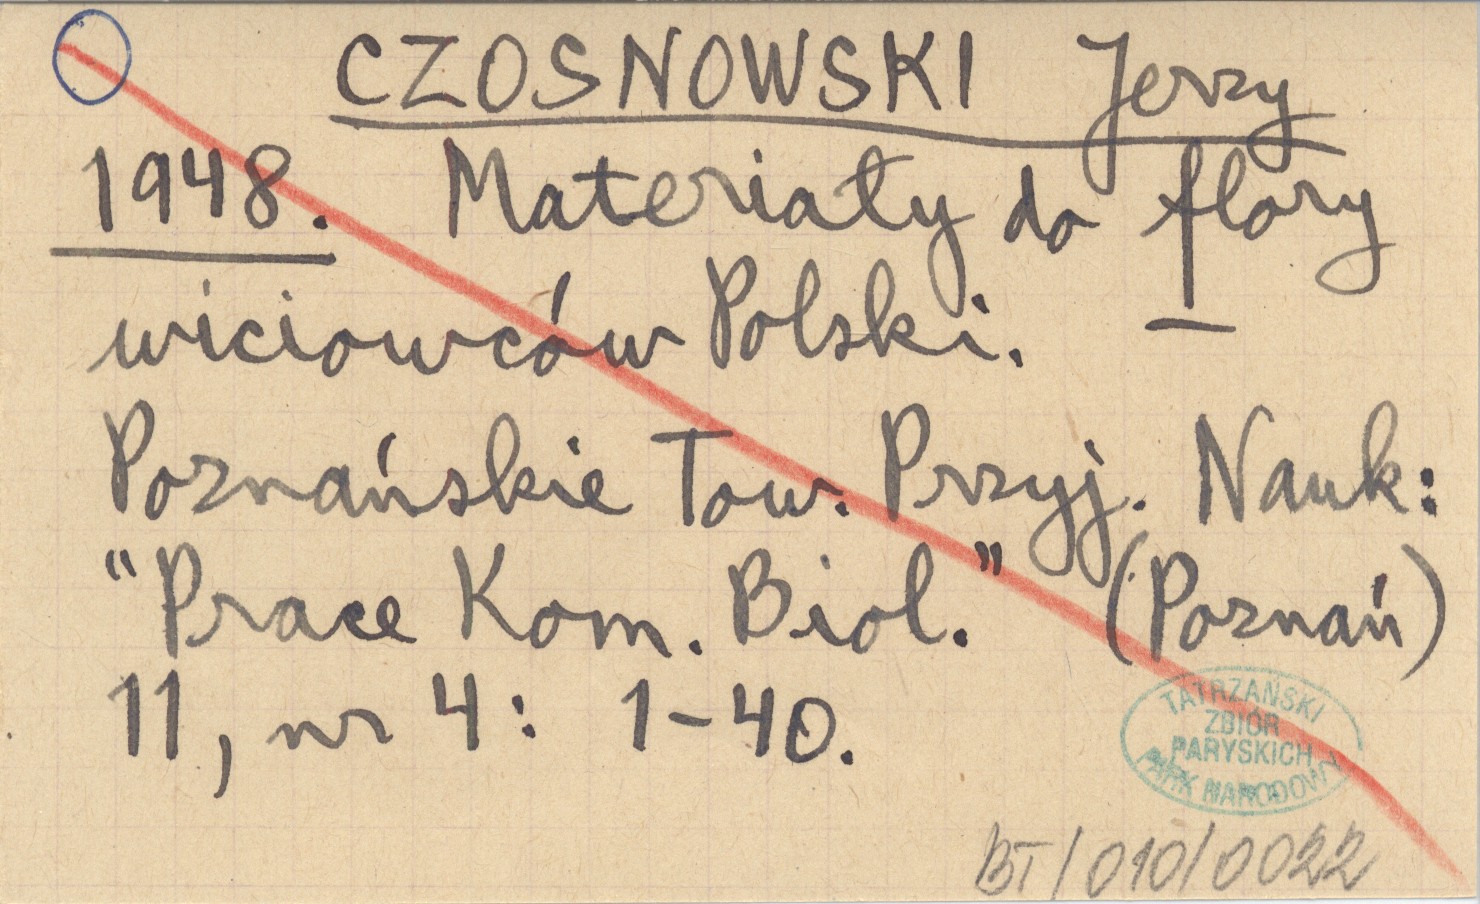 CZOSNOWSKI Jerzy
1948. Materiały do flory
wiciowców Polski.
Poznańskie Tow. Przyj. Nauk:
"Prace Kom. Biol." (Poznań)
11, nr 4: 1-40.
TATRZAŃSKI
ZBIÓR
PARYSKICH
PARK NARODOWY
BT/010/0022